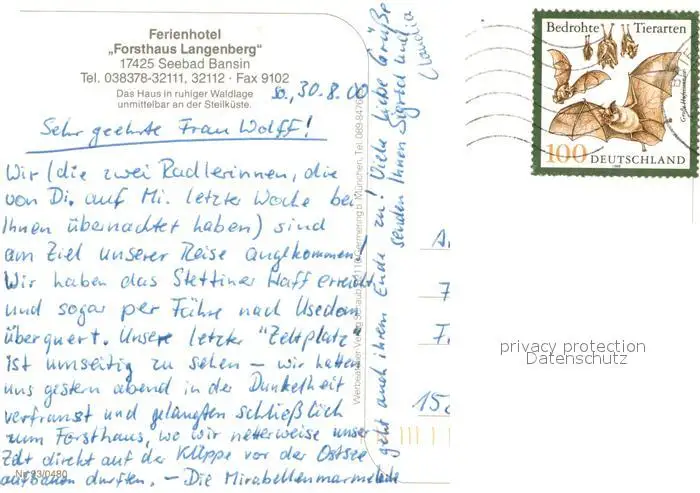 Ferienhotel
„Forsthaus Langenberg“
17425 Seebad Bansin
Tel. 038378-32111, 32112 · Fax 9102
Das Haus in ruhiger Waldlage
unmittelbar an der Steilküste.
30.8.00
Sehr geehrte Frau Wolff!
Wir (die zwei Radlerinnen, die
von Di. auf Mi. letzter Woche bei
Ihnen übernachtet haben) sind
am Ziel unserer Reise angekommen!
Wir haben das Stettiner Haff erreicht
und sogar per Fähre nach Usedom
überquert. Unsere letzter "Zeltplatz"
ist umseitig zu sehen – wir hatten
uns gestern abend in der Dunkelheit
verfranst und gelangten schließlich
zum Forsthaus, wo wir netterweise unser
Zelt direkt auf der Klippe vor der Ostsee
aufbauen durften. – Die Mirabellenmarmelade
geht auch ihrem Ende zu! Viele liebe Grüße
senden Ihnen Sigrid und
Claudia
Nr. 93/0480
Bedrohte Tierarten
100 DEUTSCHLAND
privacy protection
Datenschutz